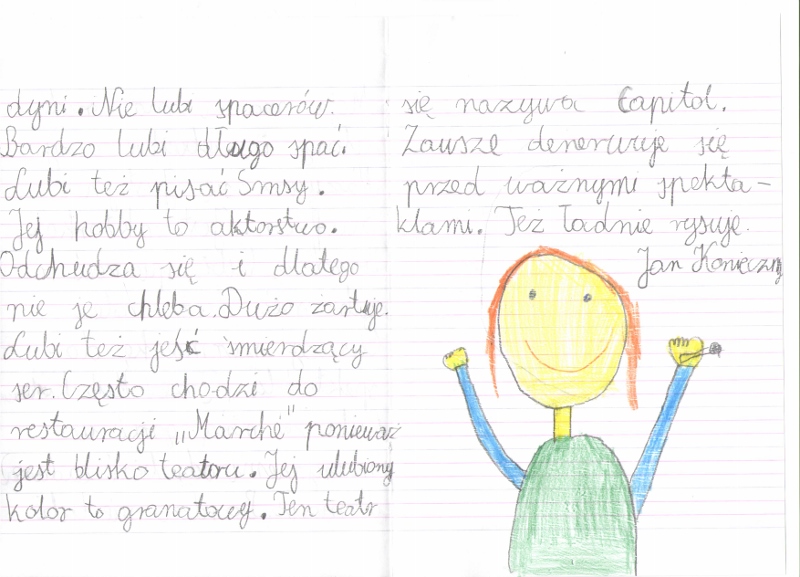 dyni. Nie lubi spacerów.
Bardzo lubi długo spać.
Lubi też pisać Smsy.
Jej hobby to aktorstwo.
Odchudza się i dlatego
nie je chleba. Dużo żartuje.
Lubi też jeść śmierdzący
ser. Często chodzi do
restauracji „Marché" ponieważ
jest blisko teatru. Jej ulubiony
kolor to granatowy. Ten teatr
się nazywa Capitol.
Zawsze denerwuje się
przed ważnymi spekta-
klami. Też ładnie rysuje.
Jan Konieczny